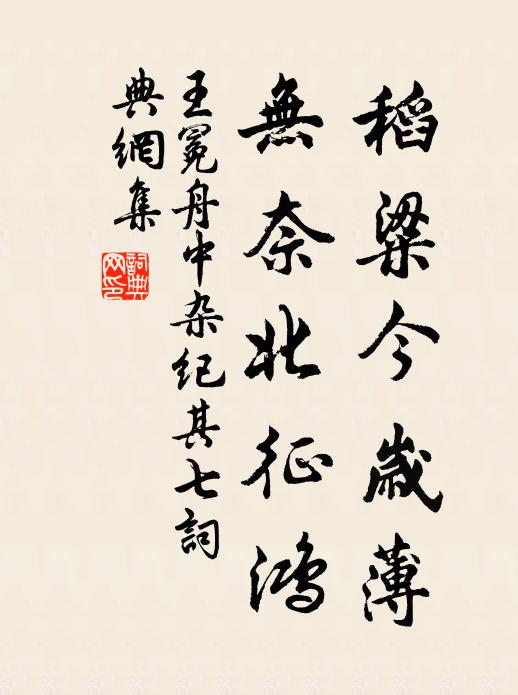 稻粱今歲薄
無奈北征鴻
王冕舟中杂纪其七詞
典網集
詞典网印